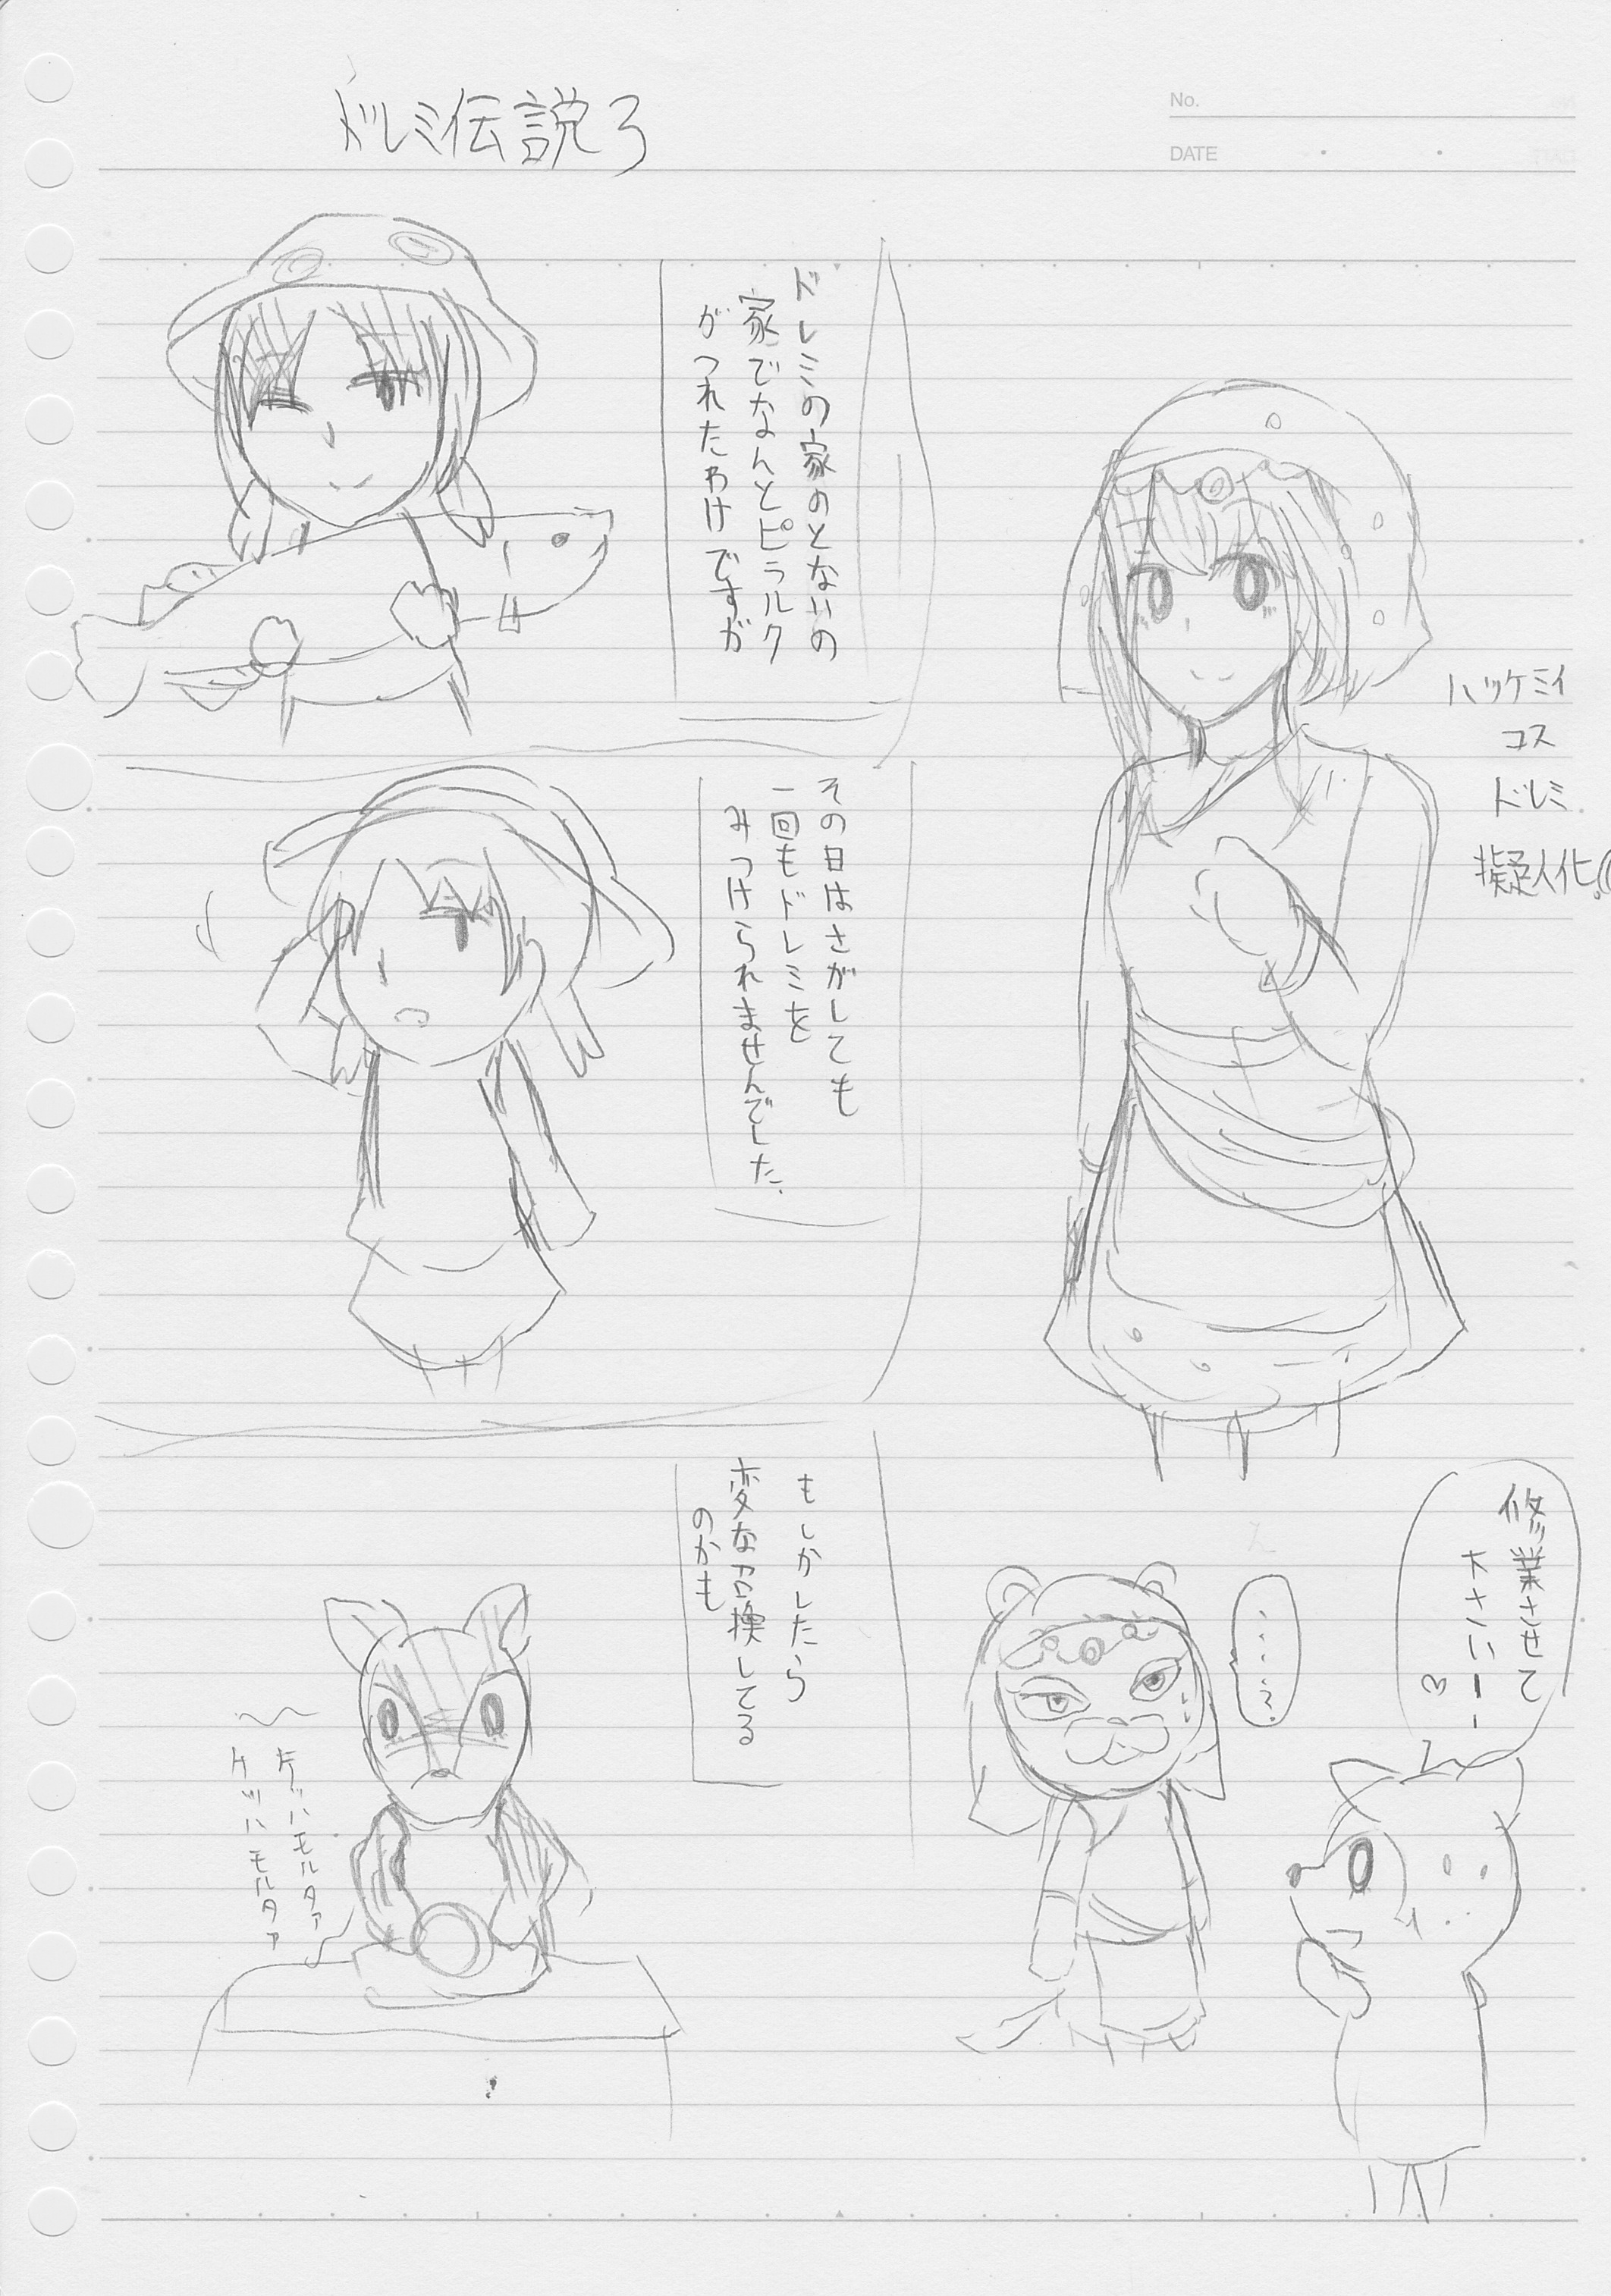 ドレミ伝説3
No.
DATE
ドレミの家のとないの
家でなんとピラルク
がつれたわけですが
その日はさがしても
一回もドレミを
みつけられませんでした.
もしかしたら
変な召換してる
のかも
ケッハモルタァ
ケッハモルタァ
ハッケミイ
コス
ドレミ
擬人化
修業させて
大さいーー